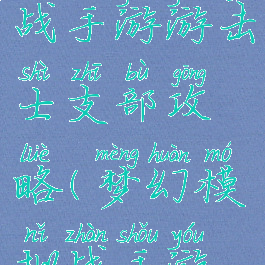 战手游游击
shì zhī bù gōng
士支部攻
luè mèng huàn mó
略(梦幻模
nǐ zhàn shǒu yóu
拟战手游